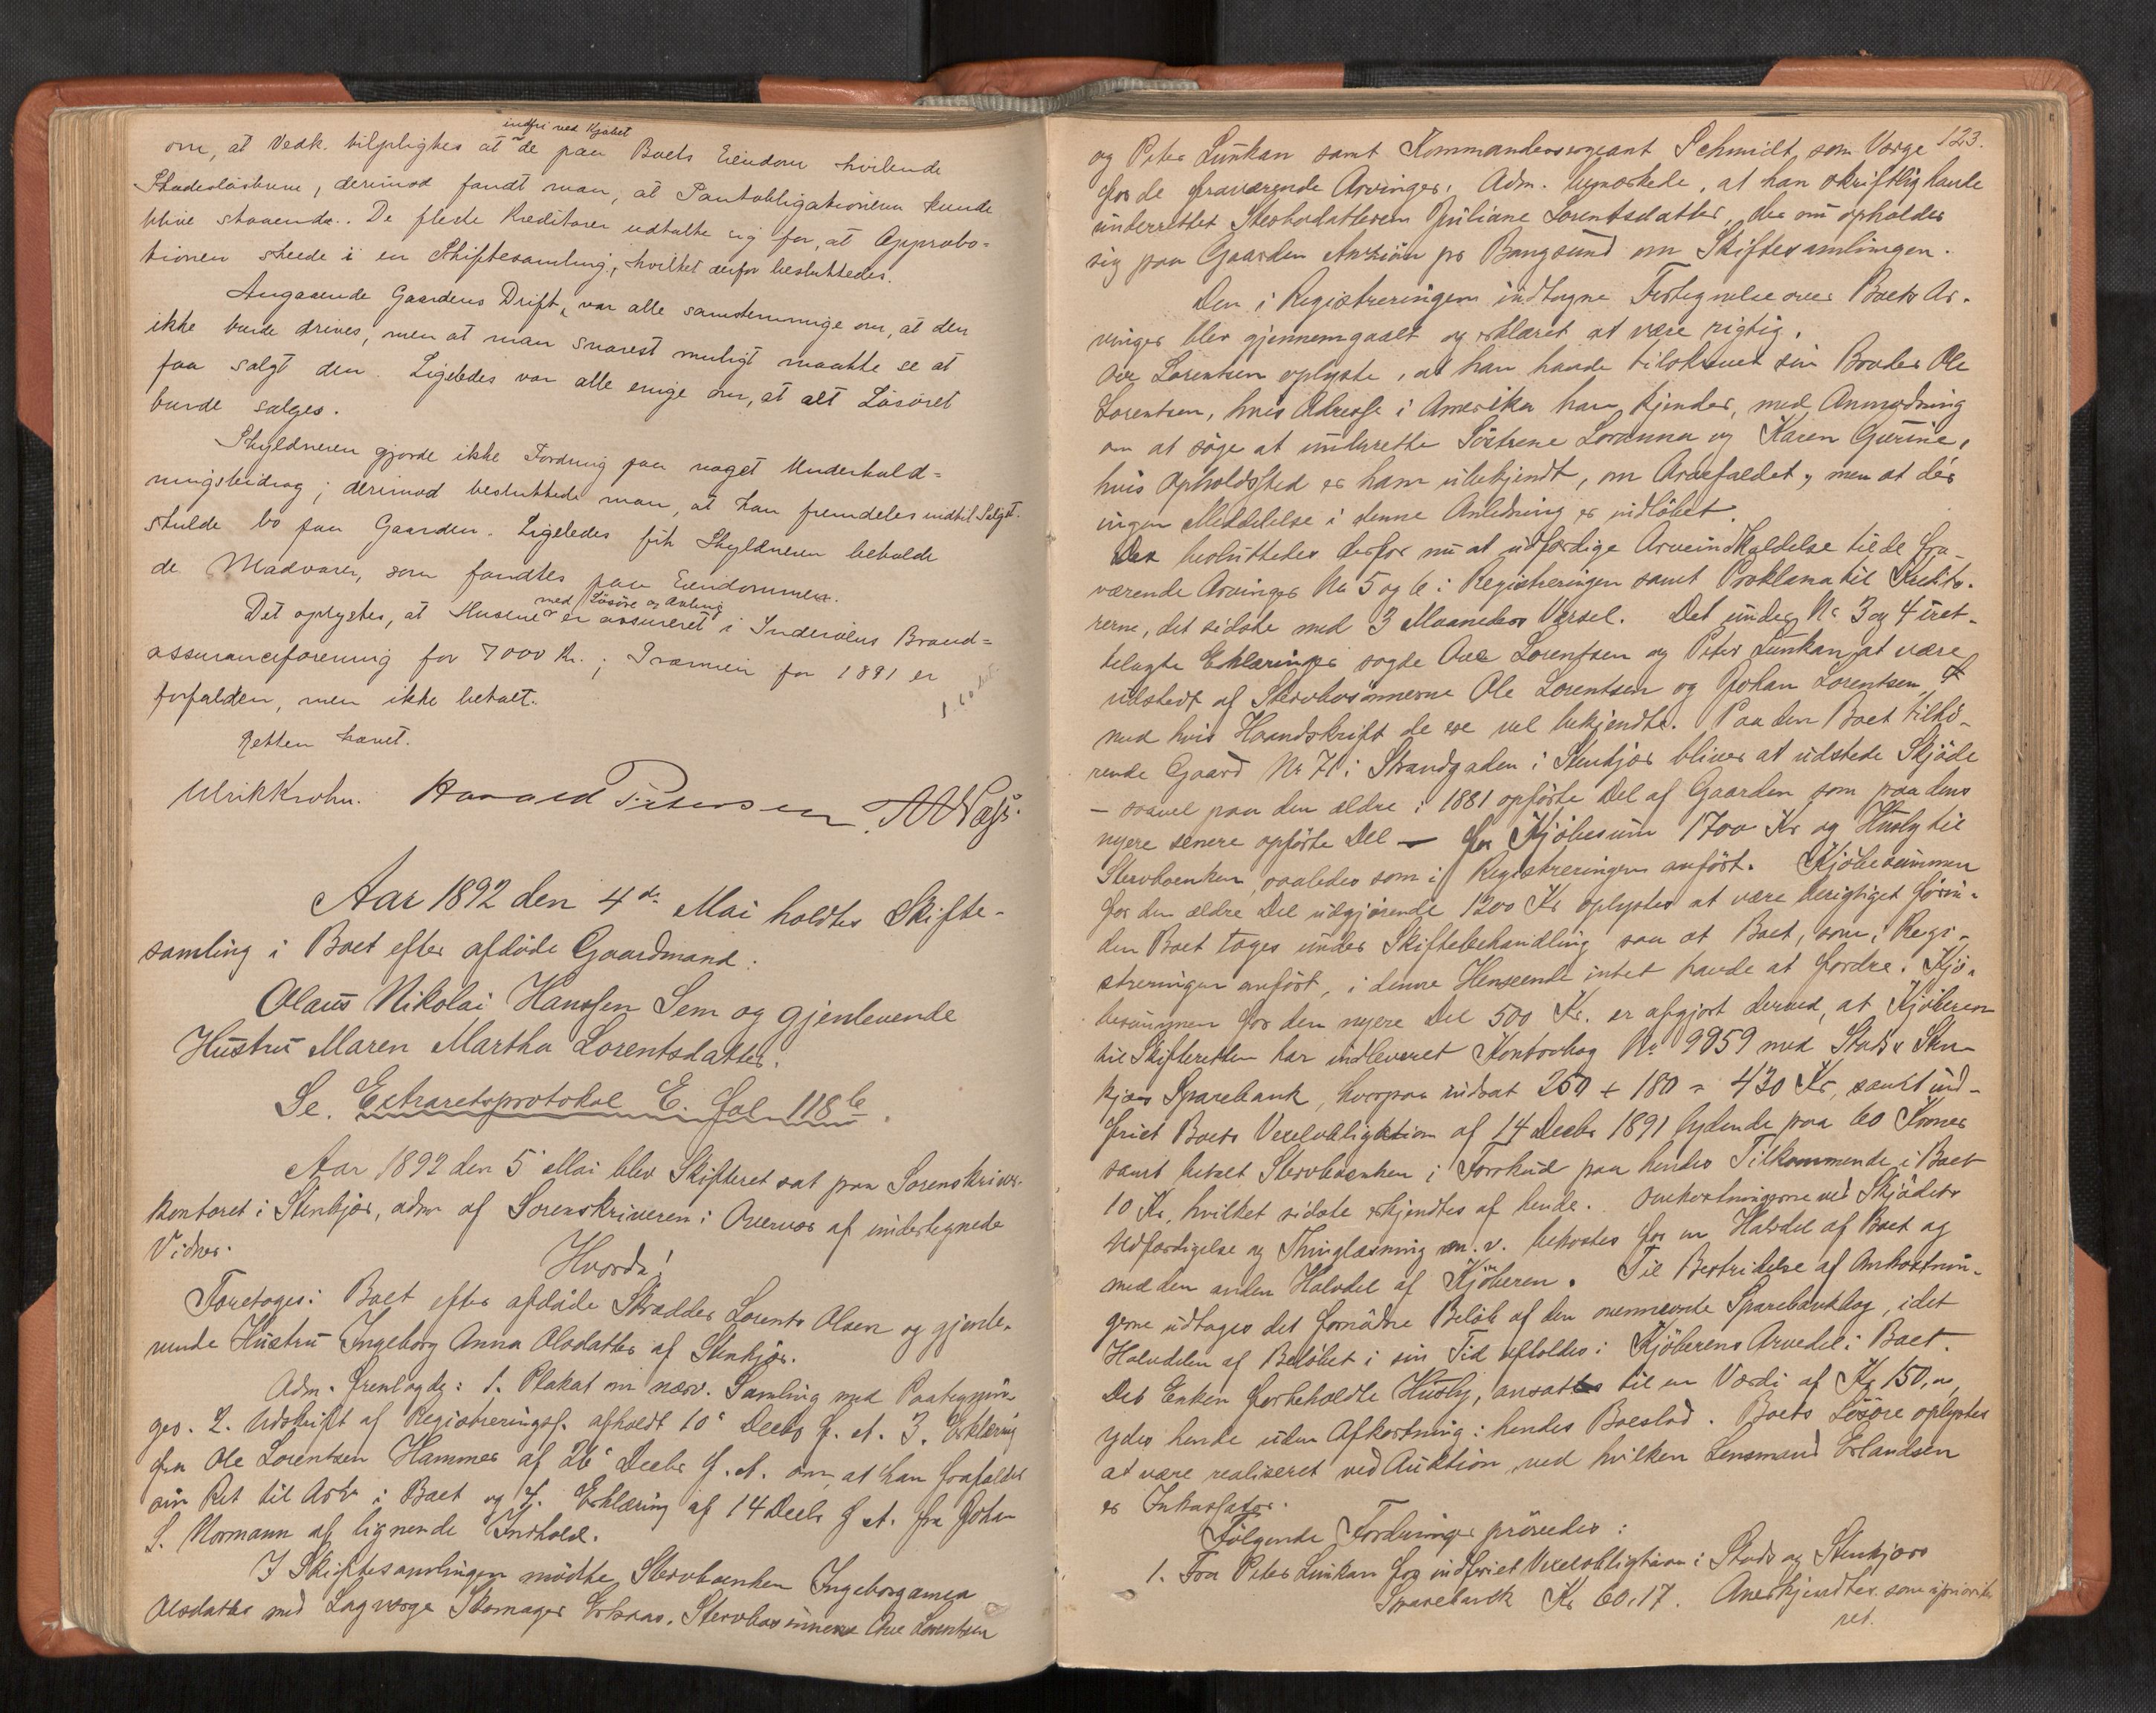 indfri ved Kjøbet
om, at Vedk. tilpligtes at de paa Boets Eiendom hvilende
blive staaende. De fleste Kreditorer udtalte sig for, at Approba=
tionen skeede i en Skiftesamling, hvilket derfor besluttedes.
Angaaende Gaardens Drift, var alle samstemmige om, at den
ikke burde drives, men at man snarest muligt maatte se at
faa solgt den. Ligeledes var alle enige om, at alt Løsøret
burde sælges.
Skyldneren gjorde ikke Fordring paa noget Underhold=
ningsbidrag; derimod besluttede man, at han fremdeles indtil Salget
skulde bo paa Gaarden. Ligeledes fik Skyldneren beholde
de Madvarer, som fandtes paa Eiendommen.
med Løsøre og Avling
Det oplystes, at Husene er assureret i Inderøens Brand=
assuranceforening for 7000 Kr.; Præmien for 1891 er
forfalden, men ikke betalt.
Retten hævet.
Ulrik Krohn. Harald Petersen.
Aar 1892 den 4de Mai holdtes Skifte-
samling i Boet efter afdøde Gaardmand
Olaus Nikolai Hanssen Sem og gjenlevende
Hustru Maren Martha Lorentsdatter.
Se. Extraretsprotokol E. fol. 118b.
Aar 1892 den 5 Mai blev Skifteret sat paa Sorenskriver-
kontoret i Stenkjær, adm af Sorenskriveren i Overvær af undertegnede
Vidner.
Hvorda!
Foretoges: Boet efter afdøde Skrædder Lorents Olsen og gjenle-
vende Hustru Ingeborg Anna Olsdatter af Stenkjær.
Adm. fremlagde: 1. Plakat om nærv. Samling med Paategnin-
ger. 2. Udskrift af Registreringsf. afholdt 10 Decbr f. A. 3. Erklæring
fra Ole Lorentsen Hammer af 26 Decbr f. A. om, at han frafalder
sin Ret til Arv i Boet og 4. Erklæring af 14 Decbr f A. fra Johan
L. Normann af lignende Indhold.
I Skiftesamlingen mødte Stervboenken Ingeborganna
Olsdatter med Lagværge Skomager Stervbosønnerne Ove Lorentsen
123.
og Peter Lunkan samt Kommandersergeant Schmidt som Værge
for de fraværende Arvinger. Adm. bemærkede, at han skriftlig havde
underrettet Stervbodatteren Juliane Lorentsdatter, der nu opholder
sig paa Gaarden pr Bangsund om Skiftesamlingen.
Den i Registreringen indtagne Fortegnelse over Boets Ar-
vinger blev gjennemgaaet og erklæret at være rigtig.
Ove Lorentsen oplyste, at han havde tilskrevet sin Broder Ole
Lorentsen, hvis Adresse i Amerika han kjender, med Anmodning
om at søge at underrette Søstrene Lovanna og Karen Gurine,
hvis Opholdssted er ham ubekjendt, om Arvefaldet, men at der
ingen Meddelelse i denne Anledning er indløbet.
Det besluttedes derfor nu at udfærdige Arveindkaldelse til de fra-
værende Arvinger No 5 og 6 i Registreringen samt Proklama til Kredito-
rerne, det sidste med 3 Maaneders Varsel. Det under No 3 og 4 iret-
telagte Erklæringer sagde Ove Lorentsen og Peter Lunkan at være
udstedt af Stervbosønnerne Ole Lorentsen og Johan Lorentsen,
med hvis Haandskrift de ere vel bekjendte. Paa den Boet tilhø-
rende Gaard No 71 i Strandgaden i Stenkjær bliver at udstede Skjøde
– saavel paa den ældre i 1881 opførte Del af Gaarden som paa dens
nyere senere opførte Del – for Kjøbesum 1700 Kr og Husly til
Stervboenken, saaledes som i Registreringen anført. Kjøbesummen
for den ældre Del udgjørende 1200 Kr oplystes at være berigtiget forin-
den Boet toges under Skiftebehandling saa at Boet, som i Regi-
streringen anført, i denne Henseende intet havde at fordre. Kjø-
besummen for den nyere Del 500 Kr. er afgjort derved, at Kjøberen
til Skifteretten har indleveret Kontrabog No 9959 med Stods & Sten-
kjærs Sparebank, hvorpaa indsat 250 + 180 = 430 Kr, samt ind-
friet Boets Vexelobligation af 14 Decbr 1891 lydende paa 60 Kroner
samt betalt Stervboenken i Forskud paa hendes Tilkommende i Boet
10 Kr, hvilket sidste erkjendtes af hende. Omkostningerne ved Skjødets
Udfærdigelse og Thinglæsning m. v. bekostes for en Halvdel af Boet og
med den anden Halvdel af Kjøberen. Til Bestridelse af Omkostnin-
gerne udtages det fornødne Beløb af den ovennævnte Sparebankbog, idet
Halvdelen af Beløbet i sin Tid afholdes i Kjøberens Arvedel i Boet.
Det Enken forbeholdte Husly, ansattes til en Værdi af Kr 150,00
ydes hende uden Afkortning i hendes Boeslod. Boets Løsøre oplystes
at være realiseret ved Auktion, ved hvilken Lensmand Erlandsen
er Inkassator.
Følgende Fordringer prøvedes:
1. Fra Peter Lunkan for indfriet Vexelobligation i Stods og Stenkjærs
Sparebank Kr 60,17. Anerkjendtes som uprioriteret.